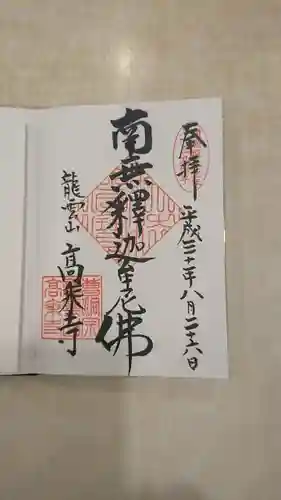 奉拝
平成三十年八月二十六日
南無釋迦牟尼佛
龍雲山
高乗寺